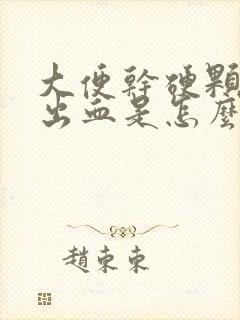 大便幹硬顆
出血是怎麼
趙東東